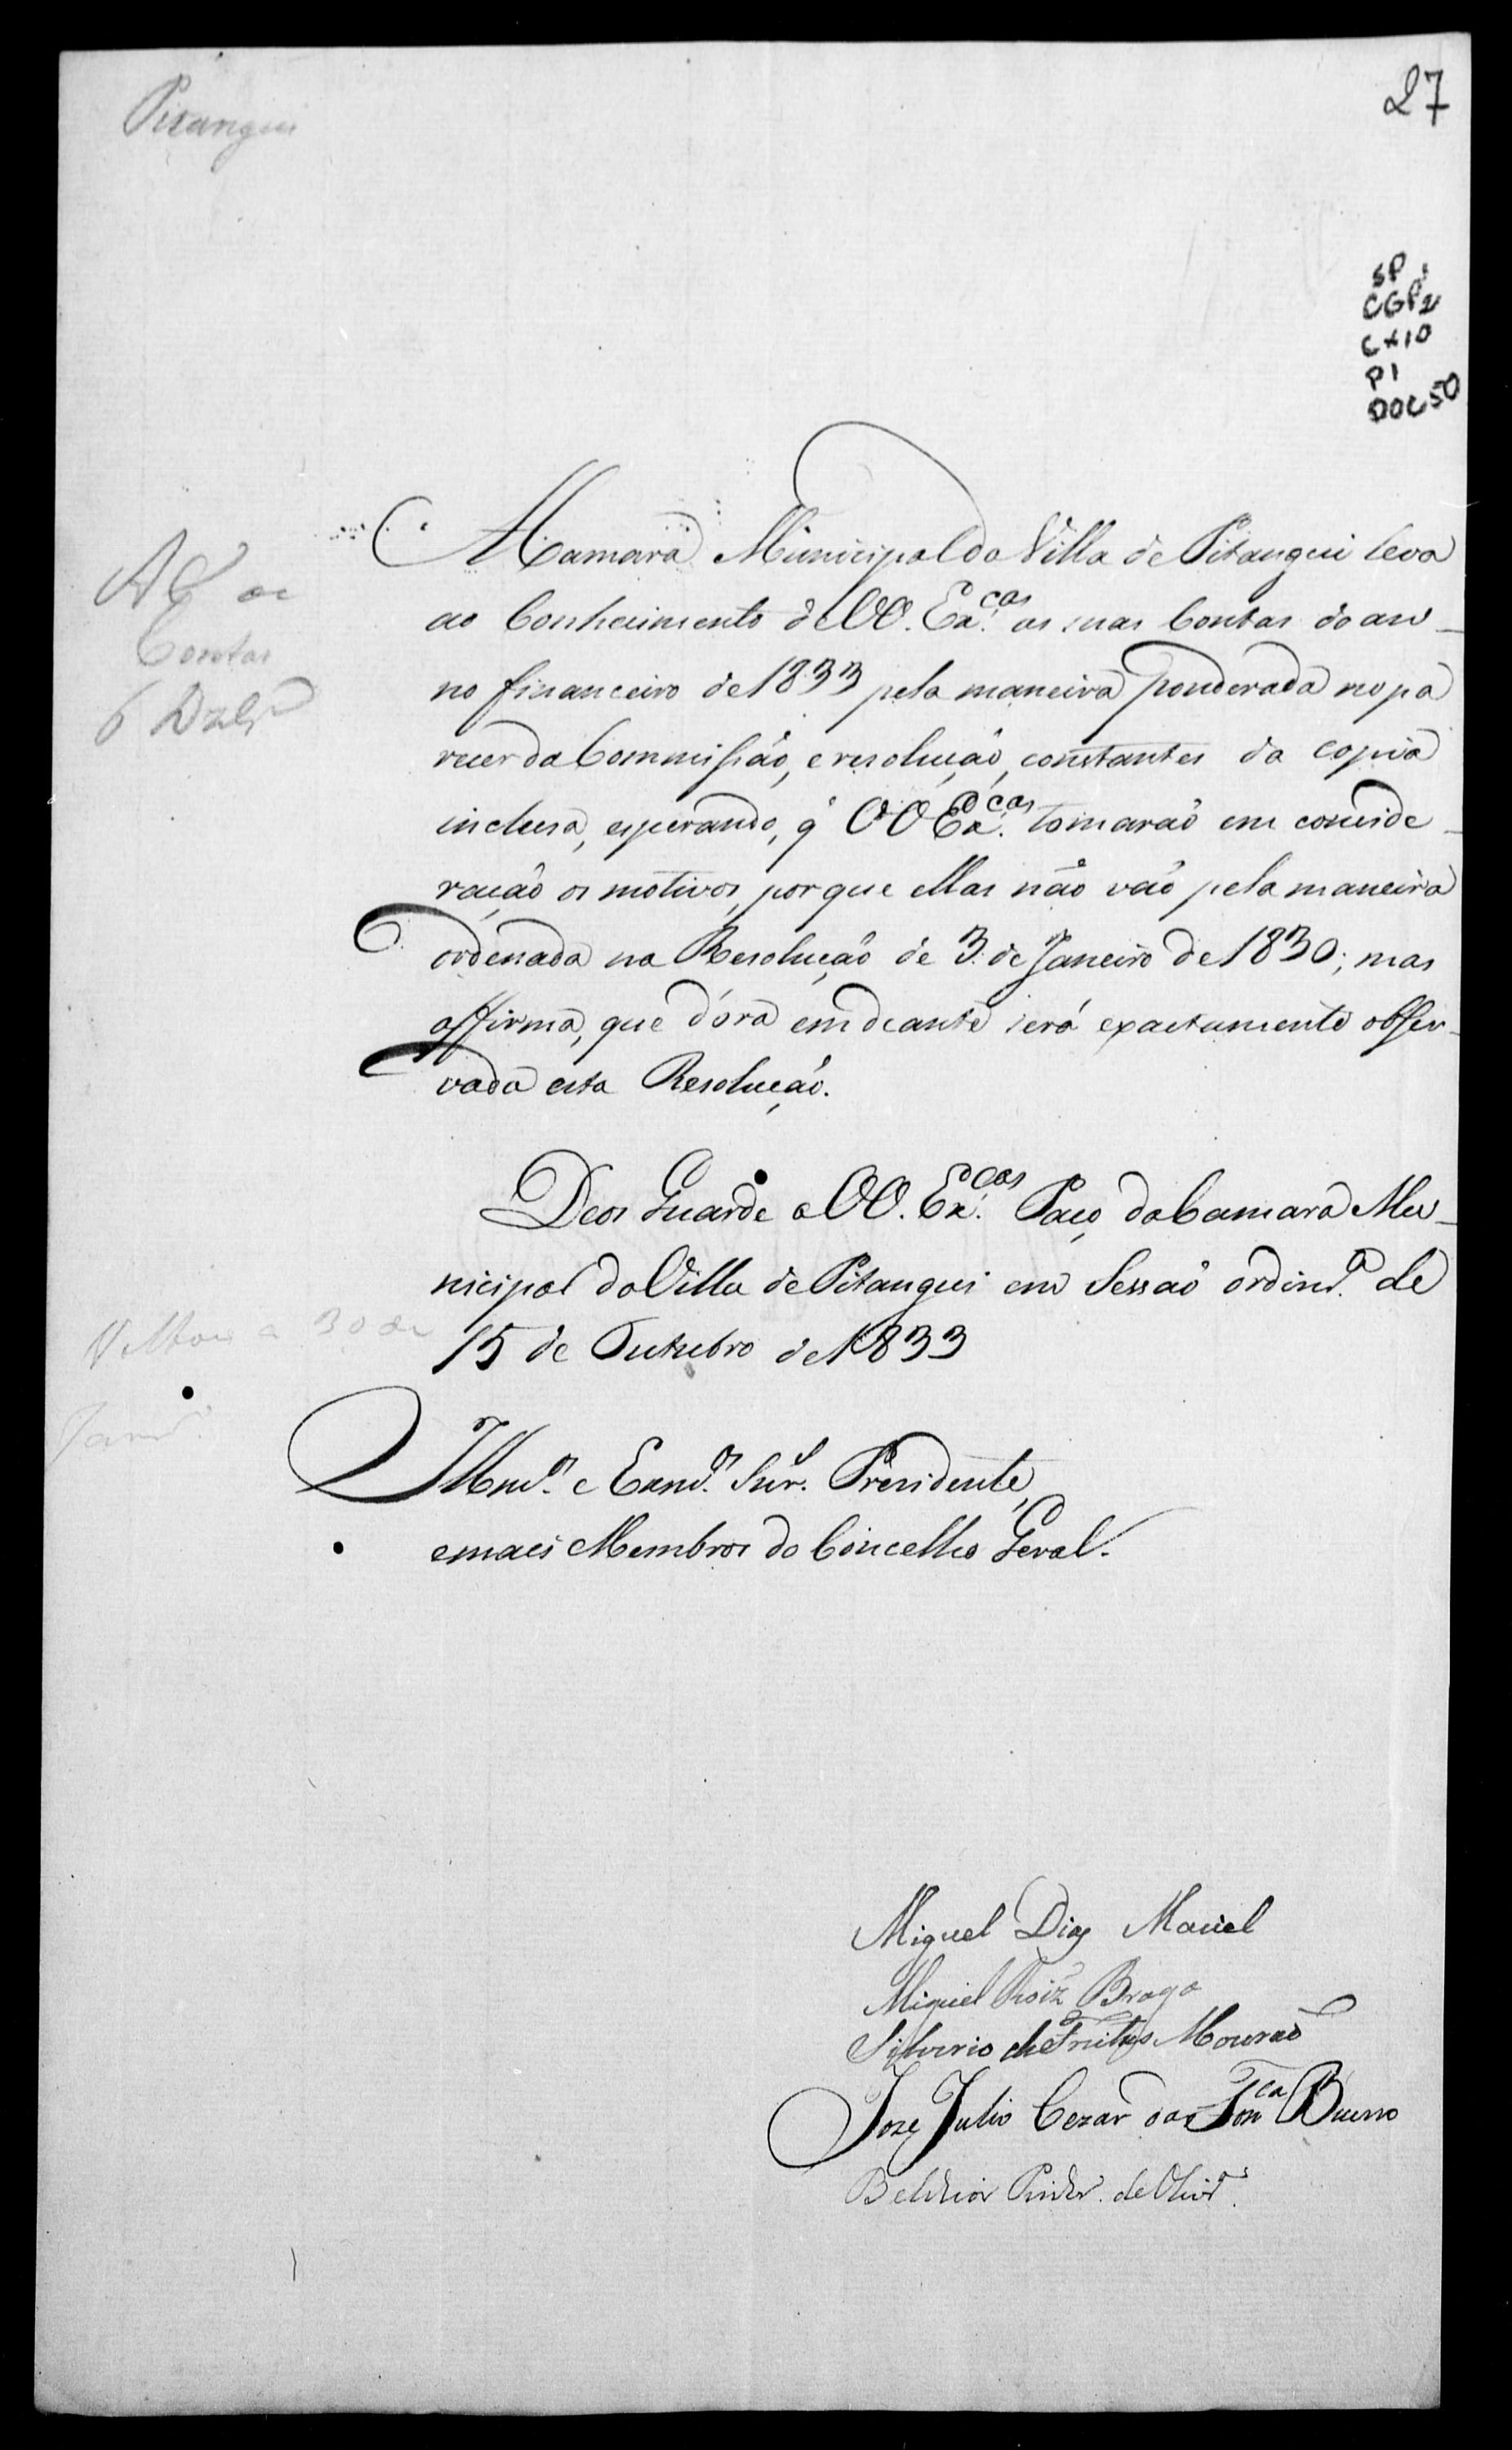 Pitangui
27
SP 1
CGP2
CX10
P1
DOC50
A Camara Municipal da Villa de Pitangui leva
ao Conhecimento de VV. Ex.cas as suas Contas do an-
no financeiro de 1833 pela maneira ponderada no pa
recer da Commissão, e resolução, constantes da copia
inclusa, esperando, q̃ VV Ex.cas tomarão em conside-
ração os motivos, porque ellas não vão pela maneira
ordenada na Resolução de 3 de Janeiro de 1830; mas
affirma, que d'óra em deante será exactamente obser-
vada esta Resolução.
A C de
Contas
6 Dzbr.o
Deos Guarde a VV. Ex.cas Paço da Camara Mu-
nicipal da Villa de Pitangui em Sessão ordinr.a de
15 de Outubro de 1833
Voltou a 30 de
Janr.o
Illm.os e Exm.os Snr.s Presidente,
e mais Membros do Concelho Geral.
Miguel Dias Maciel
Miguel Roiz Braga
Silverio de Freitas Mourão
Joze Julio Cezar da Fon.ca Bueno
Belchior de Olivr.a